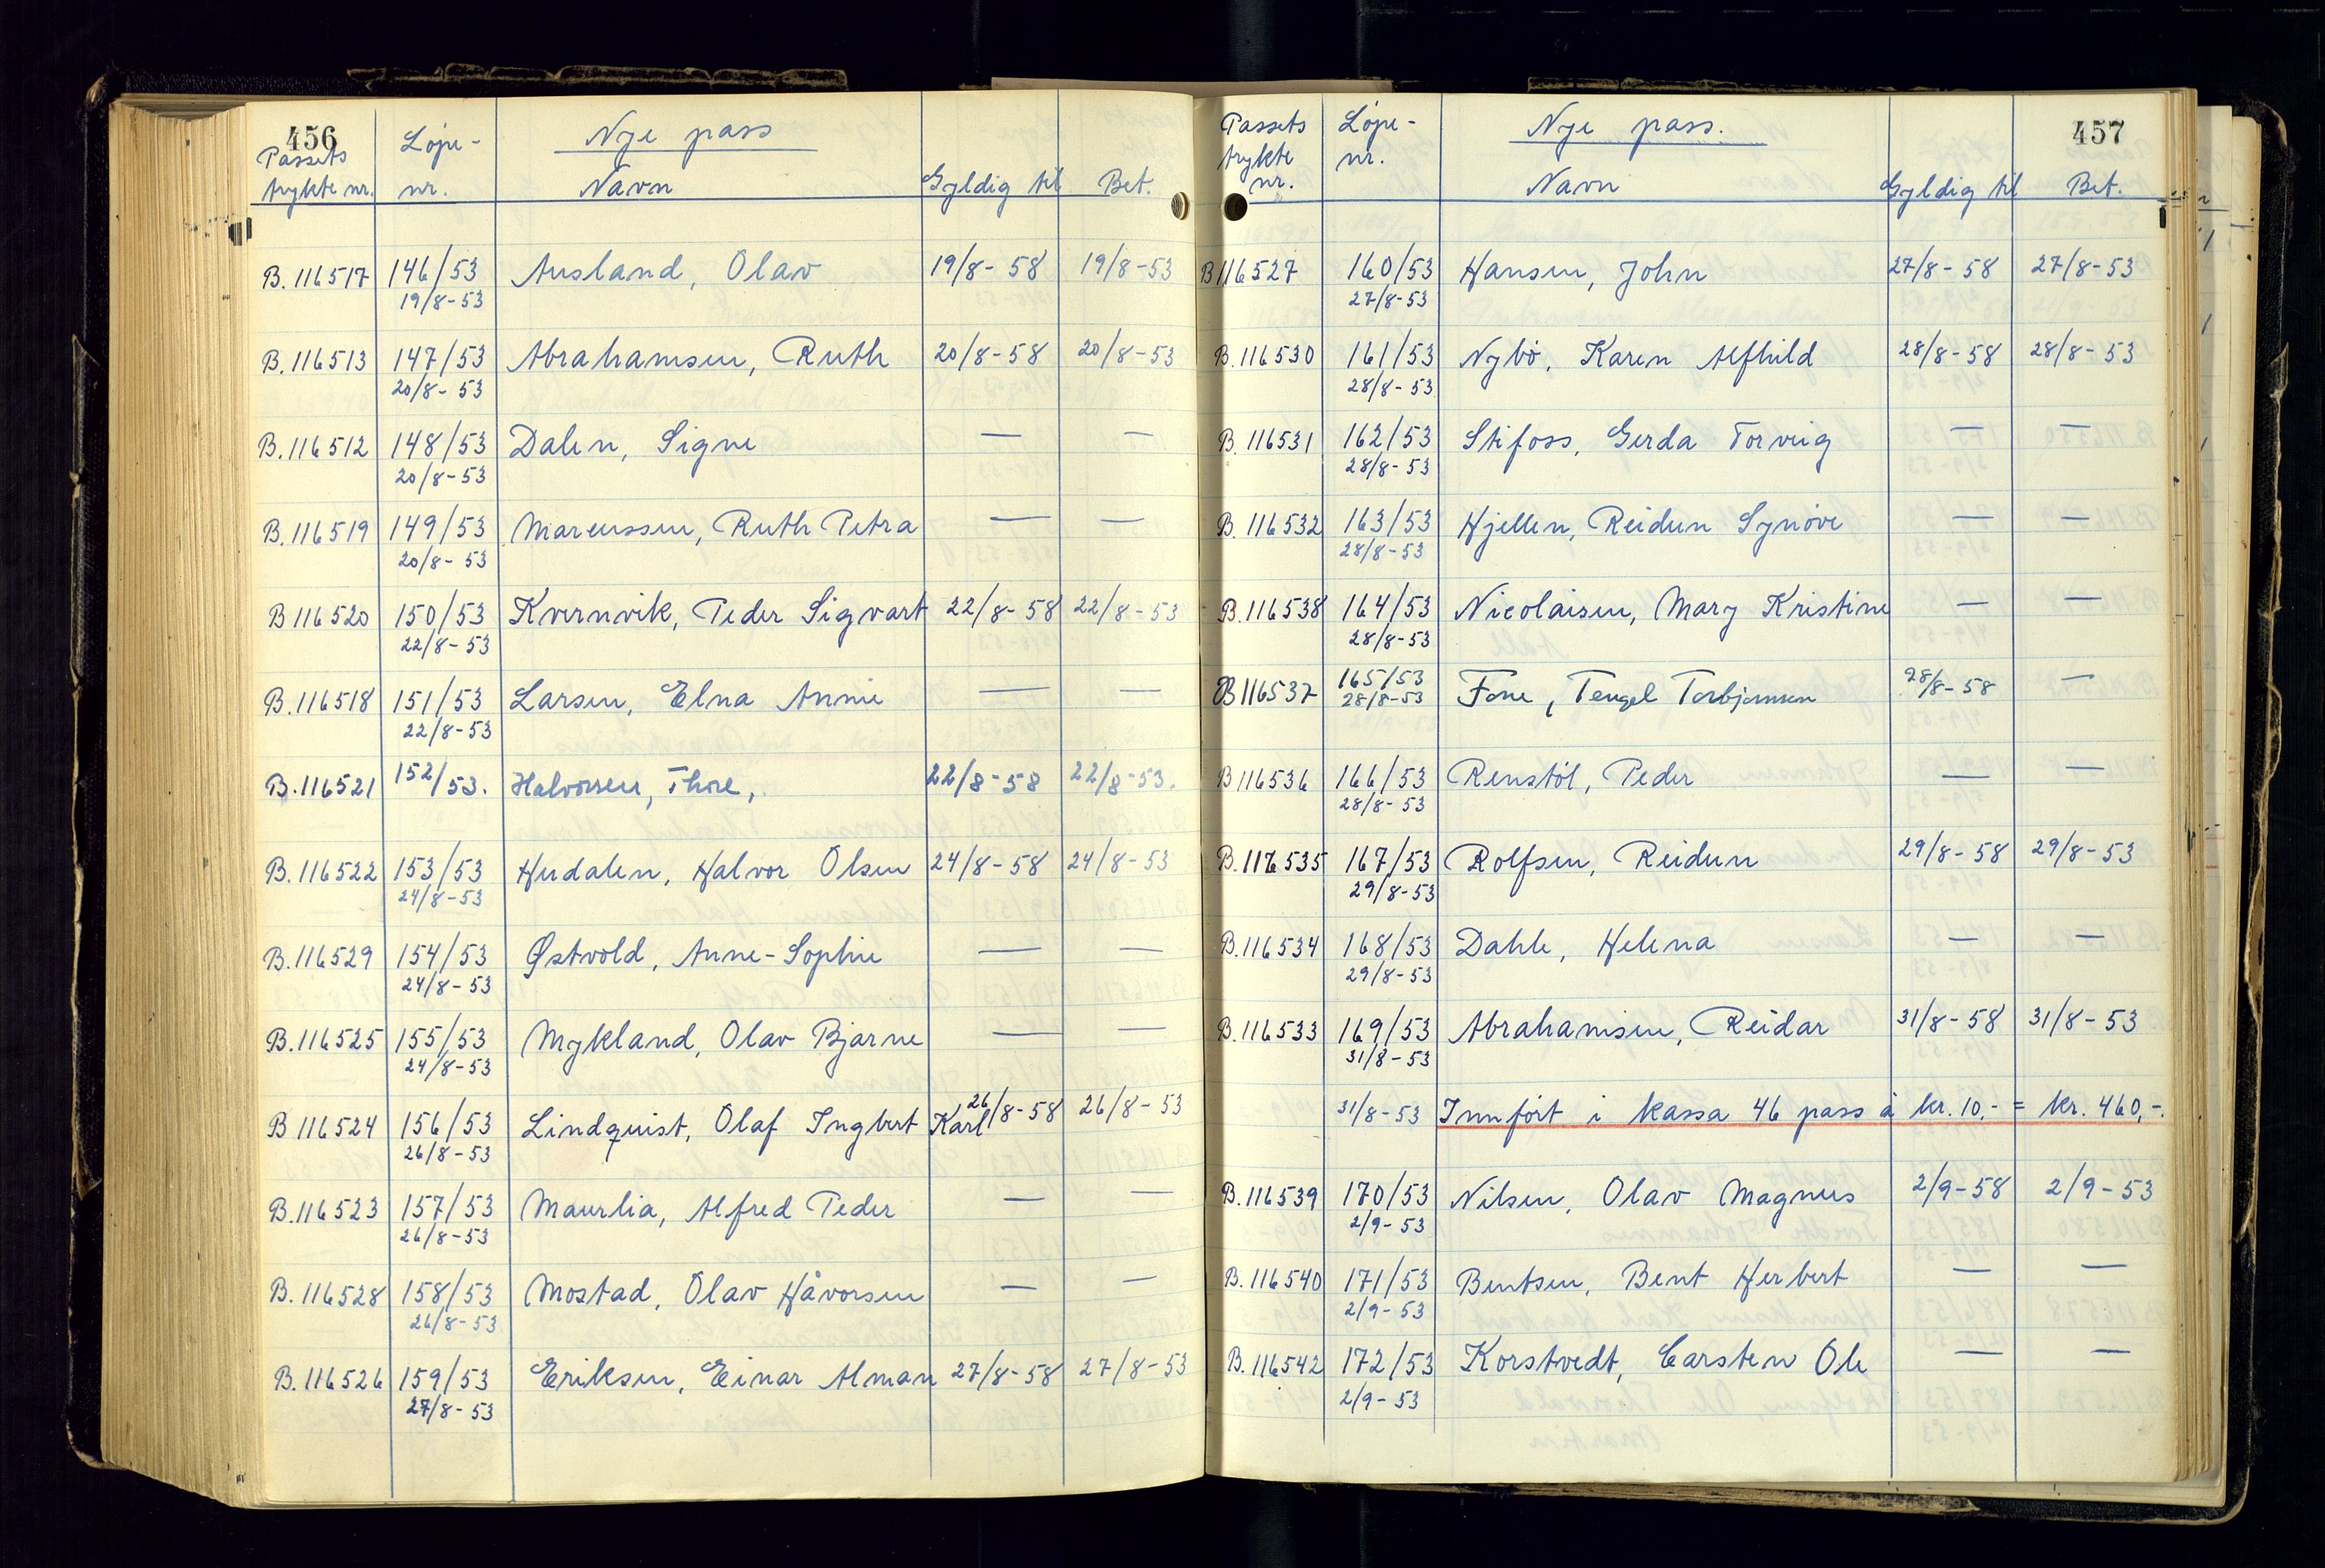 456
Nye pass
Passets trykte nr. Løpe-nr. Navn Gyldig til Bet.
B. 116517 146/53 Ausland, Olav 19/8-58 19/8-53
19/8-53
B. 116513 147/53 Abrahamsen, Ruth 20/8-58 20/8-53
20/8-53
B. 116512 148/53 Dalen, Signe — —
20/8-53
B. 116519 149/53 Marcussen, Ruth Petra — —
20/8-53
B 116520 150/53 Kvernvik, Peder Sigvart 22/8-58 22/8-53
22/8-53
B. 116518 151/53 Larsen, Elna Annie — —
22/8-53
B. 116521 152/53. Halvorsen, Thore, 22/8-58 22/8-53.
B. 116522 153/53 Hudalen, Halvor Olsen 24/8-58 24/8-53
24/8-53
B. 116529 154/53 Østvold, Anne-Sophie — —
24/8-53
B. 116525 155/53 Mykland, Olav Bjarne — —
24/8-53
B 116524 156/53 Lindquist, Olaf Ingbert Karl 26/8-58 26/8-53
26/8-53
B. 116523 157/53 Maurlia, Alfred Peder — —
26/8-53
B. 116528 158/53 Mostad, Olav Håvorsen — —
26/8-53
B. 116526 159/53 Eriksen, Einar Alman 27/8-58 27/8-53
27/8-53
457
Nye pass.
Passets trykte nr. Løpe-nr. Navn Gyldig til Bet.
B 116527 160/53 Hansen, John 27/8-58 27/8-53
27/8-53
B. 116530 161/53 Nybö, Karen Alfhild 28/8-58 28/8-53
28/8-53
B. 116531 162/53 Stifoss, Gerda Torveig — —
28/8-53
B. 116532 163/53 Hjellen, Reidun Synöve — —
28/8-53
B. 116538 164/53 Nicolaisen, Mary Kristine — —
28/8-53
B 116537 165/53 Fone, Tengel Torbjørnsen 28/8-58 —
28/8-53
B 116536 166/53 Renstöl, Peder — —
28/8-53
B. 116535 167/53 Rolfsen, Reidun 29/8-58 29/8-53
29/8-53
B. 116534 168/53 Dahle, Helena — —
29/8-53
B. 116533 169/53 Abrahamsen, Reidar 31/8-58 31/8-53
31/8-53
31/8-53 Innført i kassa 46 pass à kr. 10,- = kr. 460,-.
B. 116539 170/53 Nilsen, Olav Magnus 2/9-58 2/9-53
2/9-53
B. 116540 171/53 Bentsen, Bent Herbert — —
2/9-53
B. 116542 172/53 Korstvedt, Carsten Ole — —
2/9-53